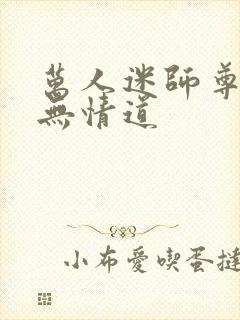 萬人迷師尊
無情道
小布愛喫蛋撻